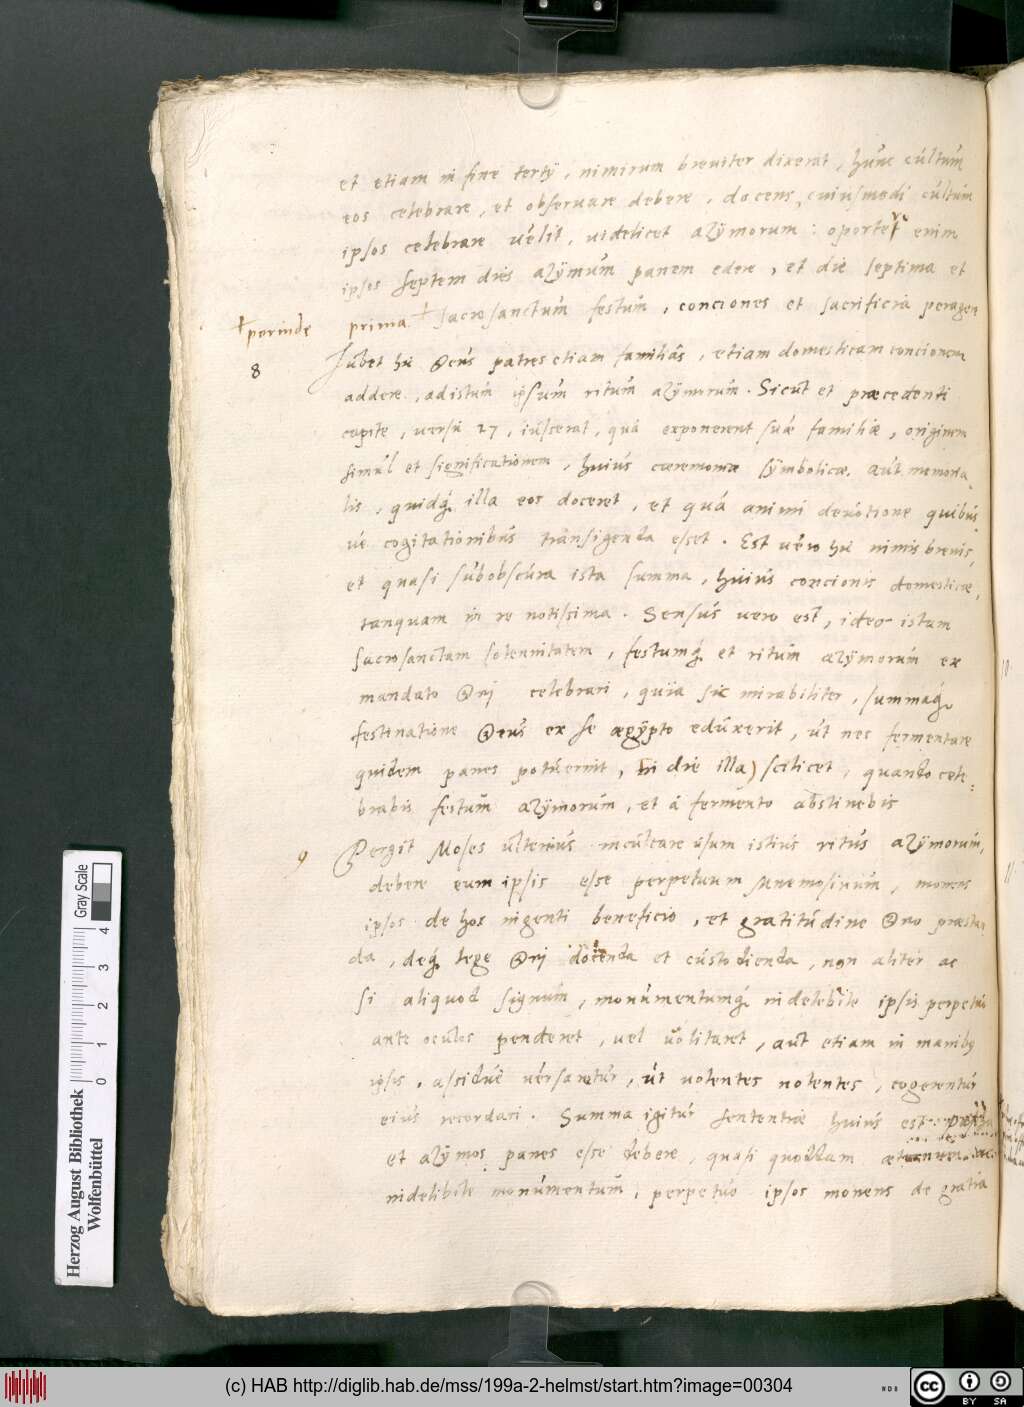 et etiam in fine tertij, nimirum breviter dixerat, hunc cultum
eos celebrare, et observare debere, docens, cuiusmodi cultum
ipsos celebrare velit, videlicet azÿmorum: oportere enim
ipsos septem dies azÿmum panem edere, et die septima et
† perinde prima † sacrosanctum festum, conciones et sacrificia peragen
8 Iubet hic Deus patres etiam familiâs, etiam domesticam concionem
addere, ad istum ipsum ritum azÿmorum. Sicut et præcedenti
capite, versu 27, iusserat, quâ exponerent suæ familiæ, originem
simul et significationem, huius cæremoniæ sÿmbolicæ, aut memoria
lis, quidq́ illa eos doceret, et quâ animi devotione quibus
ve cogitationibus transigenda esset. Est vero hic nimis brevis,
et quasi subobscura ista summa, huius concionis domesticæ,
tanquam in re notissima. Sensus vero est, ideo istam
sacrosanctam solennitatem, festumq́ et ritum azÿmorum ex
mandato Dnj celebrari, quia sic mirabiliter, summaq́
festinatione Deus ex se ægÿpto eduxerit, ut nec fermentare
quidem panes potuerint, in die illa) scilicet, quando cele=
brabis festum azÿmorum, et â fermento abstinebis
9 Pergit Moses ulterius inculcare usum istius ritus azÿmorum,
debere eum ipsis esse perpetuum Mnemosinum, monens
ipsos de hoc ingenti beneficio, et gratitudine Dno præstan
da, deq́ lege Dnj docenda et custodienda, non aliter ac
si aliquod signum, monumentumq́ indelebile ipsis perpetuo
ante oculos penderet, vel volitaret, aut etiam in manibus
ipsis, assiduè versaretur, ut volentes nolentes, cogerentur
eius recordari. Summa igitur sententiæ huius est
et azÿmos panes esse debere, quasi quoddam
indelibile monumentum, perpetuo ipsos monens de gratia
Herzog August Bibliothek
Wolfenbüttel
0 1 2 3 4
Gray Scale
(c) HAB http://diglib.hab.de/mss/199a-2-helmst/start.htm?image=00304
cc BY SA